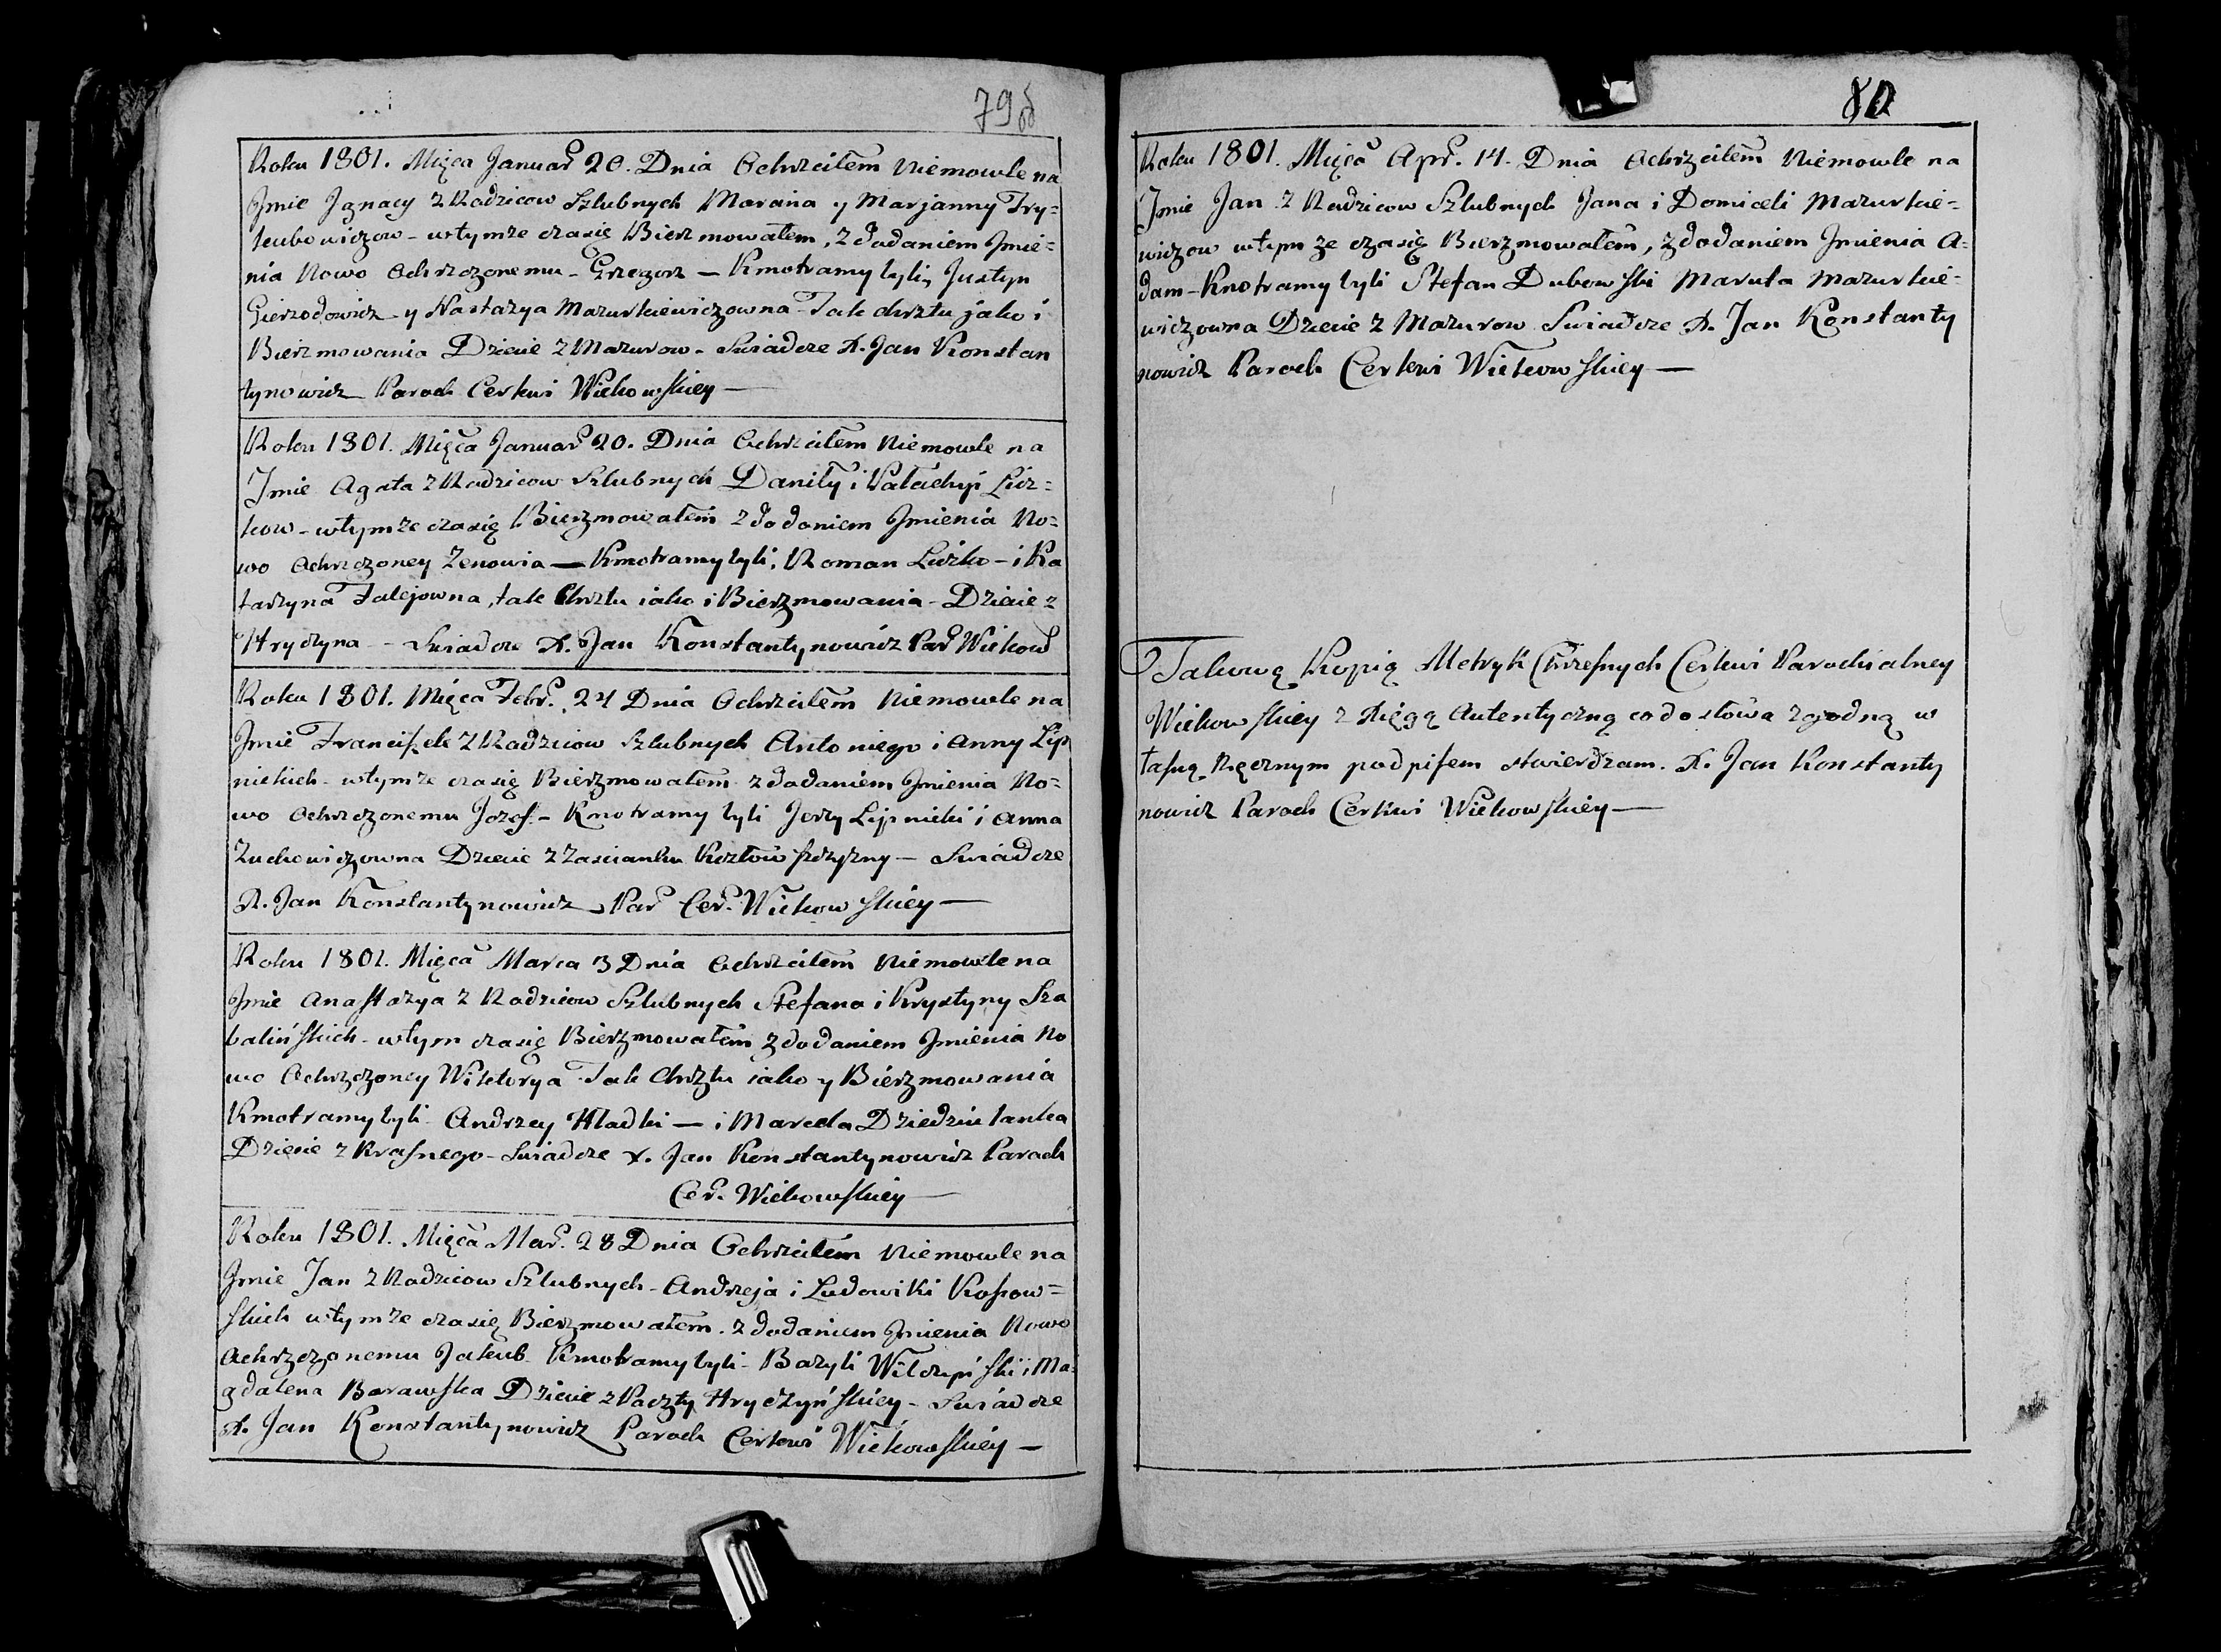 79об
Roku 1801. Mięca Januar 20. Dnia Ochrzciłem Niemowle na
Jmie Jgnacy z Rodzicow Szlubnych Marcina y Marjanny Try=
kubowiczow - wtymże czasię Bierzmowałem, z dodaniem Jmie=
nia Nowo Ochrzczonemu - Grzegorz — Kmotramy byli, Justyn
Gierzodowicz y Nastazya Mazurkiewiczowna - Tak chrztu jako i
Bierzmowania Dziecie z Mazurow - Swiadcze X. Jan Konstan
tynowicz Paroch Cerkwi Wickowskiey —
Roku 1801. Mięca Januar 20. Dnia Ochrzciłem Niemowle na
Jmie Agata z Rodzicow Szlubnych Daniły i Pałachyi Licz=
kow - wtymże czasię Bierzmowałem z dodaniem Jmienia No=
wo Ochrzczoney Zenowia — Kmotramy byli, Roman Liczko - i Ka
tarzyna Falejowna, tak Chrztu iako i Bierzmowania - Dziecie z
Hryczyna - Swiadcze X. Jan Konstantynowicz Par Wickow
Roku 1801. Mięca Febr. 24 Dnia Ochrzciłem Niemowle na
Jmie Franciszek z Rodzicow Szlubnych Antoniego i Anny Lip
nickich - wtymże czasię Bierzmowałem z dodaniem Jmienia No=
wo Ochrzczonemu Jozef - Kmotramy byli Jerzy Lipnicki i Anna
Zuchowiczowna Dziecie z Zascianku Kozłowszczyzny — Swiadcze
X. Jan Konstantynowicz Par Cer. Wickowskiey —
Roku 1801. Mięca Marca 3 Dnia Ochrzciłem Niemowle na
Jmie Anastazya z Rodzicow Szlubnych Stefana i Krystyny Sza
balińskich - wtym czasię Bierzmowałem z dodaniem Jmienia No
wo Ochrzczoney Wiktorya Tak Chrztu iako y Bierzmowania
Kmotramy byli Andrzey Hladki — i Marcela Dziedziulanka
Dziecie z Krasnego - Swiadcze X. Jan Konstantynowicz Paroch
Cer. Wickowskiey —
Roku 1801. Mięca Mar. 28 Dnia Ochrzciłem Niemowle na
Jmie Jan z Rodzicow Szlubnych - Andrzeja i Ludowiki Kossow=
skich wtymże czasię Bierzmowałem z dodaniem Jmienia Nowo
Ochrzczonemu Jakub Kmotramy byli - Bazyli Wilczyński i Ma=
gdalena Borawska Dziecie z Poczty Hryczyńskiey - Swiadcze
X. Jan Konstantynowicz Paroch Cerkwi Wickowskiey —
80
Roku 1801. Mięca Apr. 14. Dnia Ochrzciłem Niemowle na
Jmie Jan z Rodzicow Szlubnych Jana i Domiceli Mazurkie=
wiczow wtym ze czasię Bierzmowałem, z dodaniem Jmienia A=
dam - Kmotramy byli Stefan Dubowski Maruta Mazurkie=
wiczowna Dziecie z Mazurow Swiadcze X. Jan Konstanty
nowicz Paroch Cerkwi Wickowskiey —
Takową Kopią Metryk Chrzesnych Cerkwi Parochialney
Wickowskiey z Xięgą Autentyczną co do słowa zgodną w
łasną Ręcznym podpisem stwierdzam. X. Jan Konstanty
nowicz Paroch Cerkwi Wickowskiey —